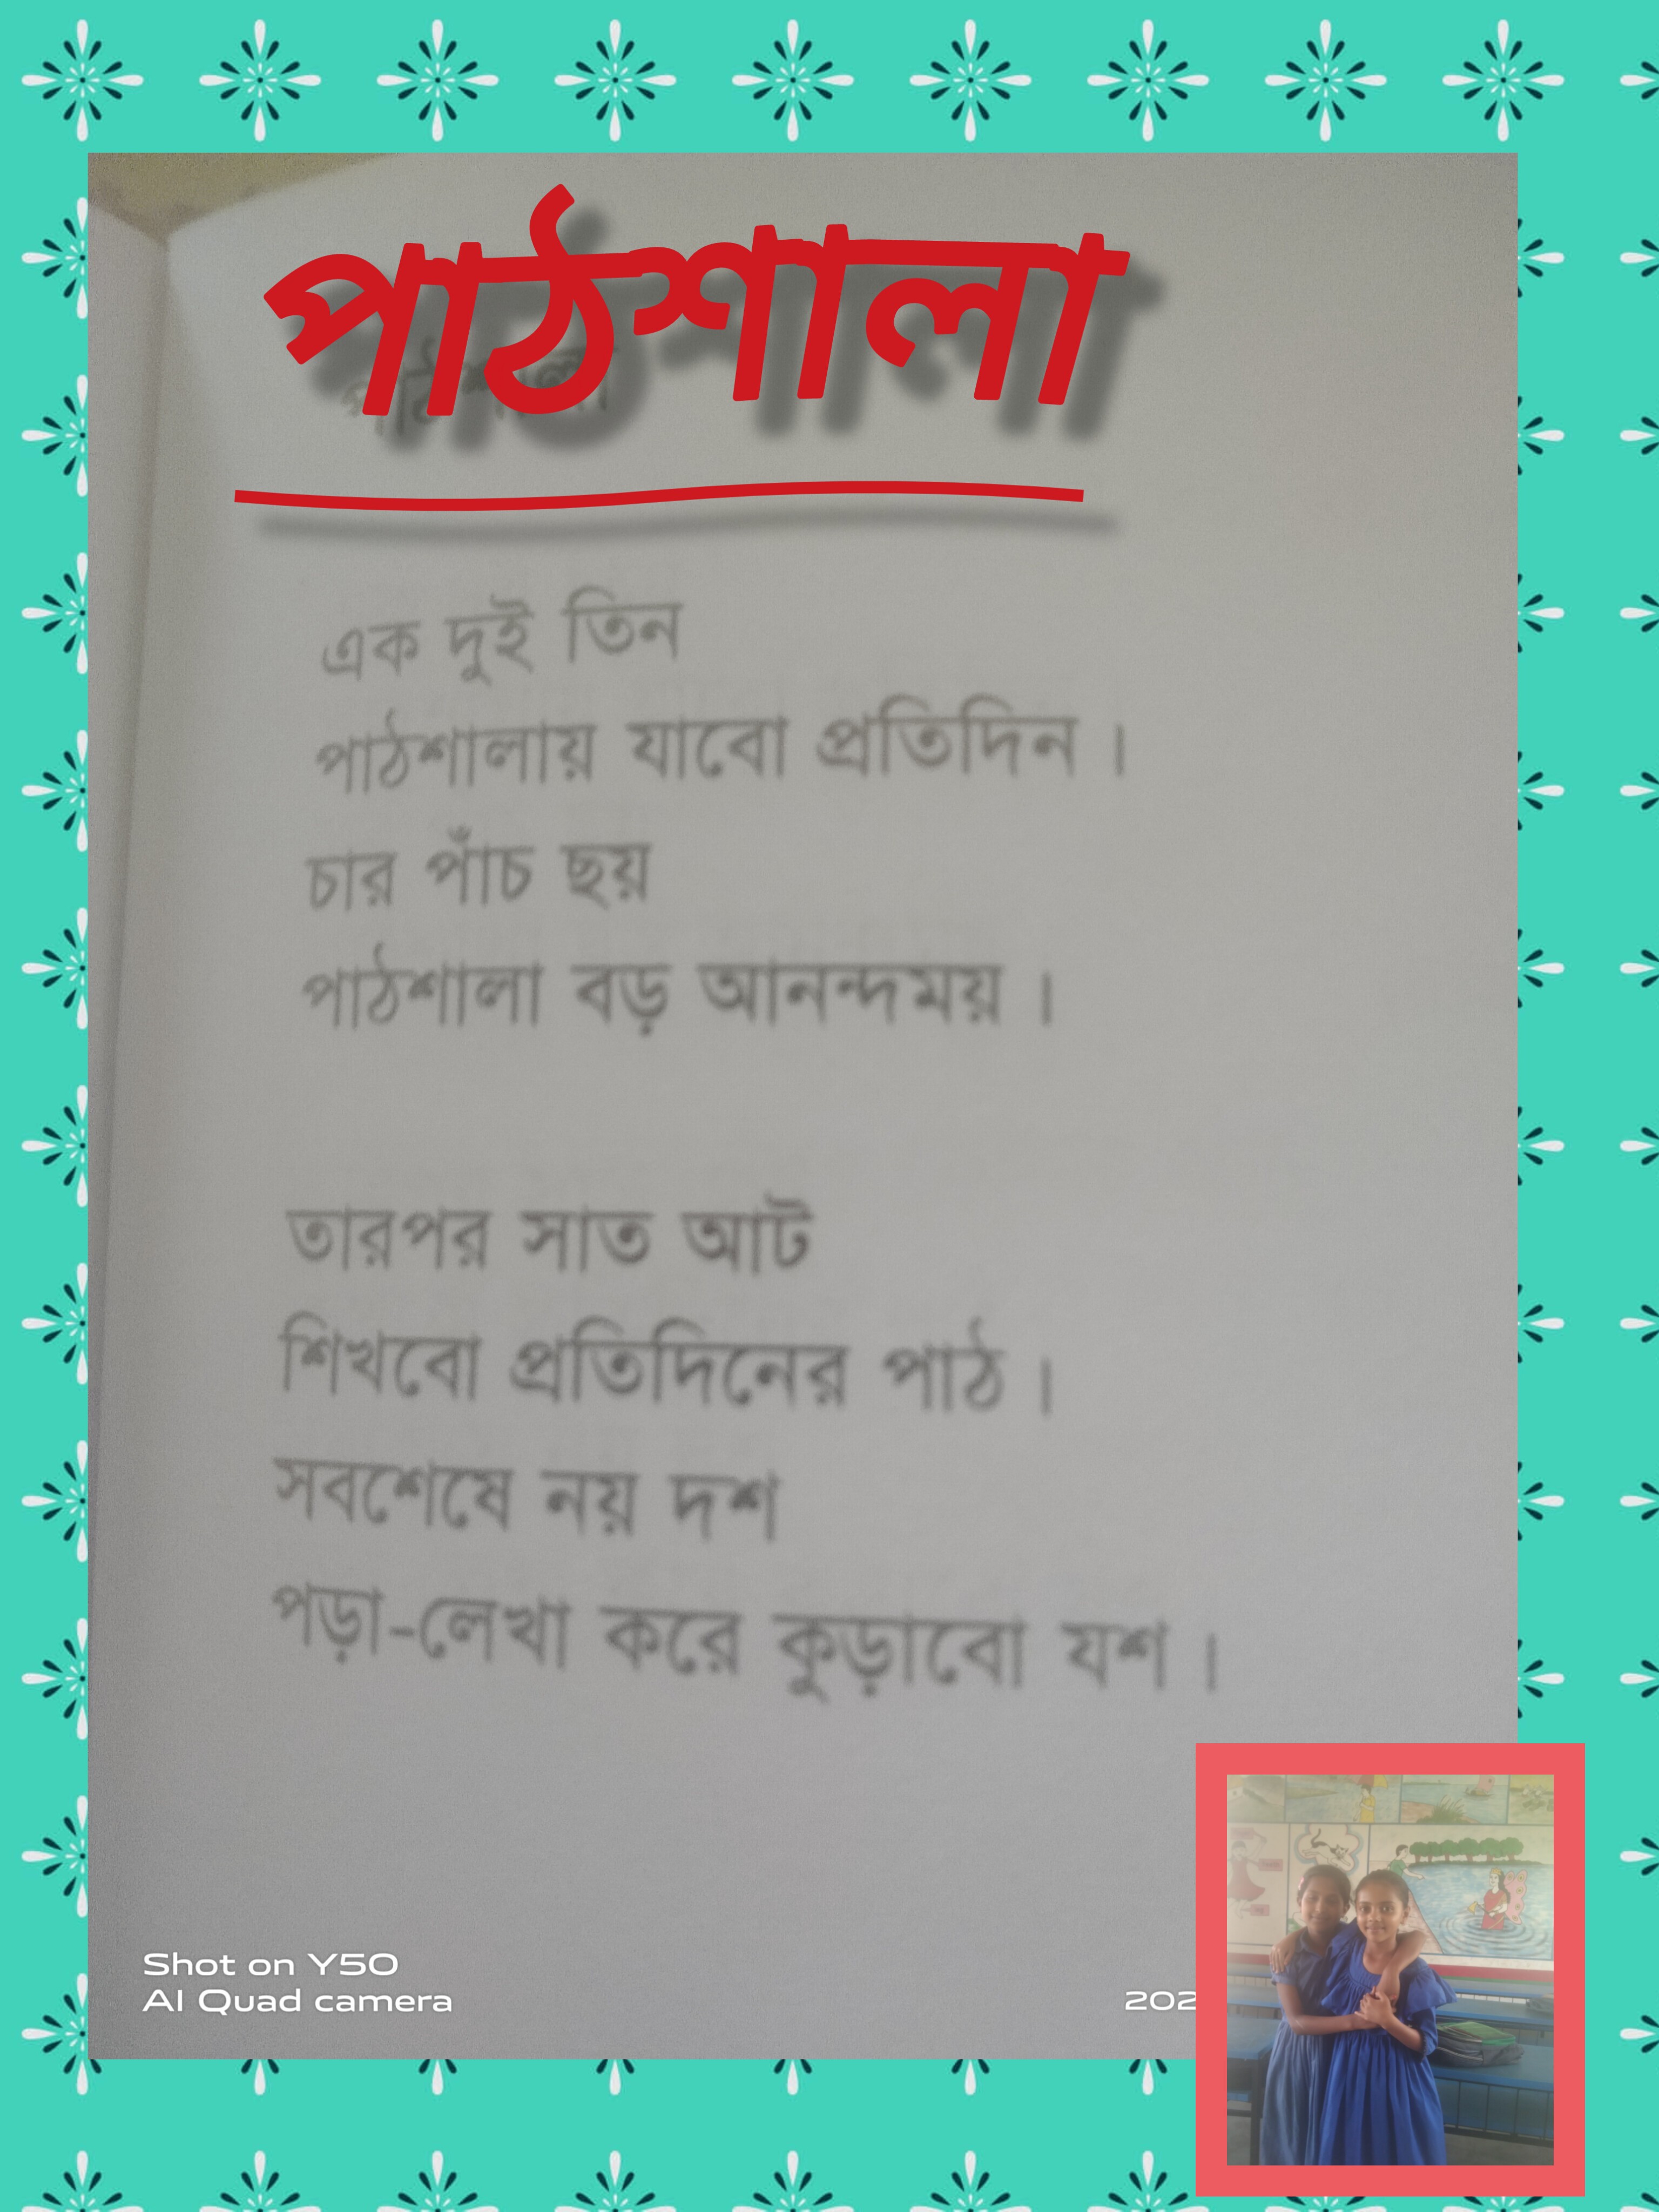 পাঠশালা
পাঠশালা
এক দুই তিন
পাঠশালায় যাবো প্রতিদিন ।
চার পাঁচ ছয়
পাঠশালা বড় আনন্দময় ।
তারপর সাত আট
শিখবো প্রতিদিনের পাঠ ।
সবশেষে নয় দশ
পড়া-লেখা করে কুড়াবো যশ ।
Shot on Y50
AI Quad camera